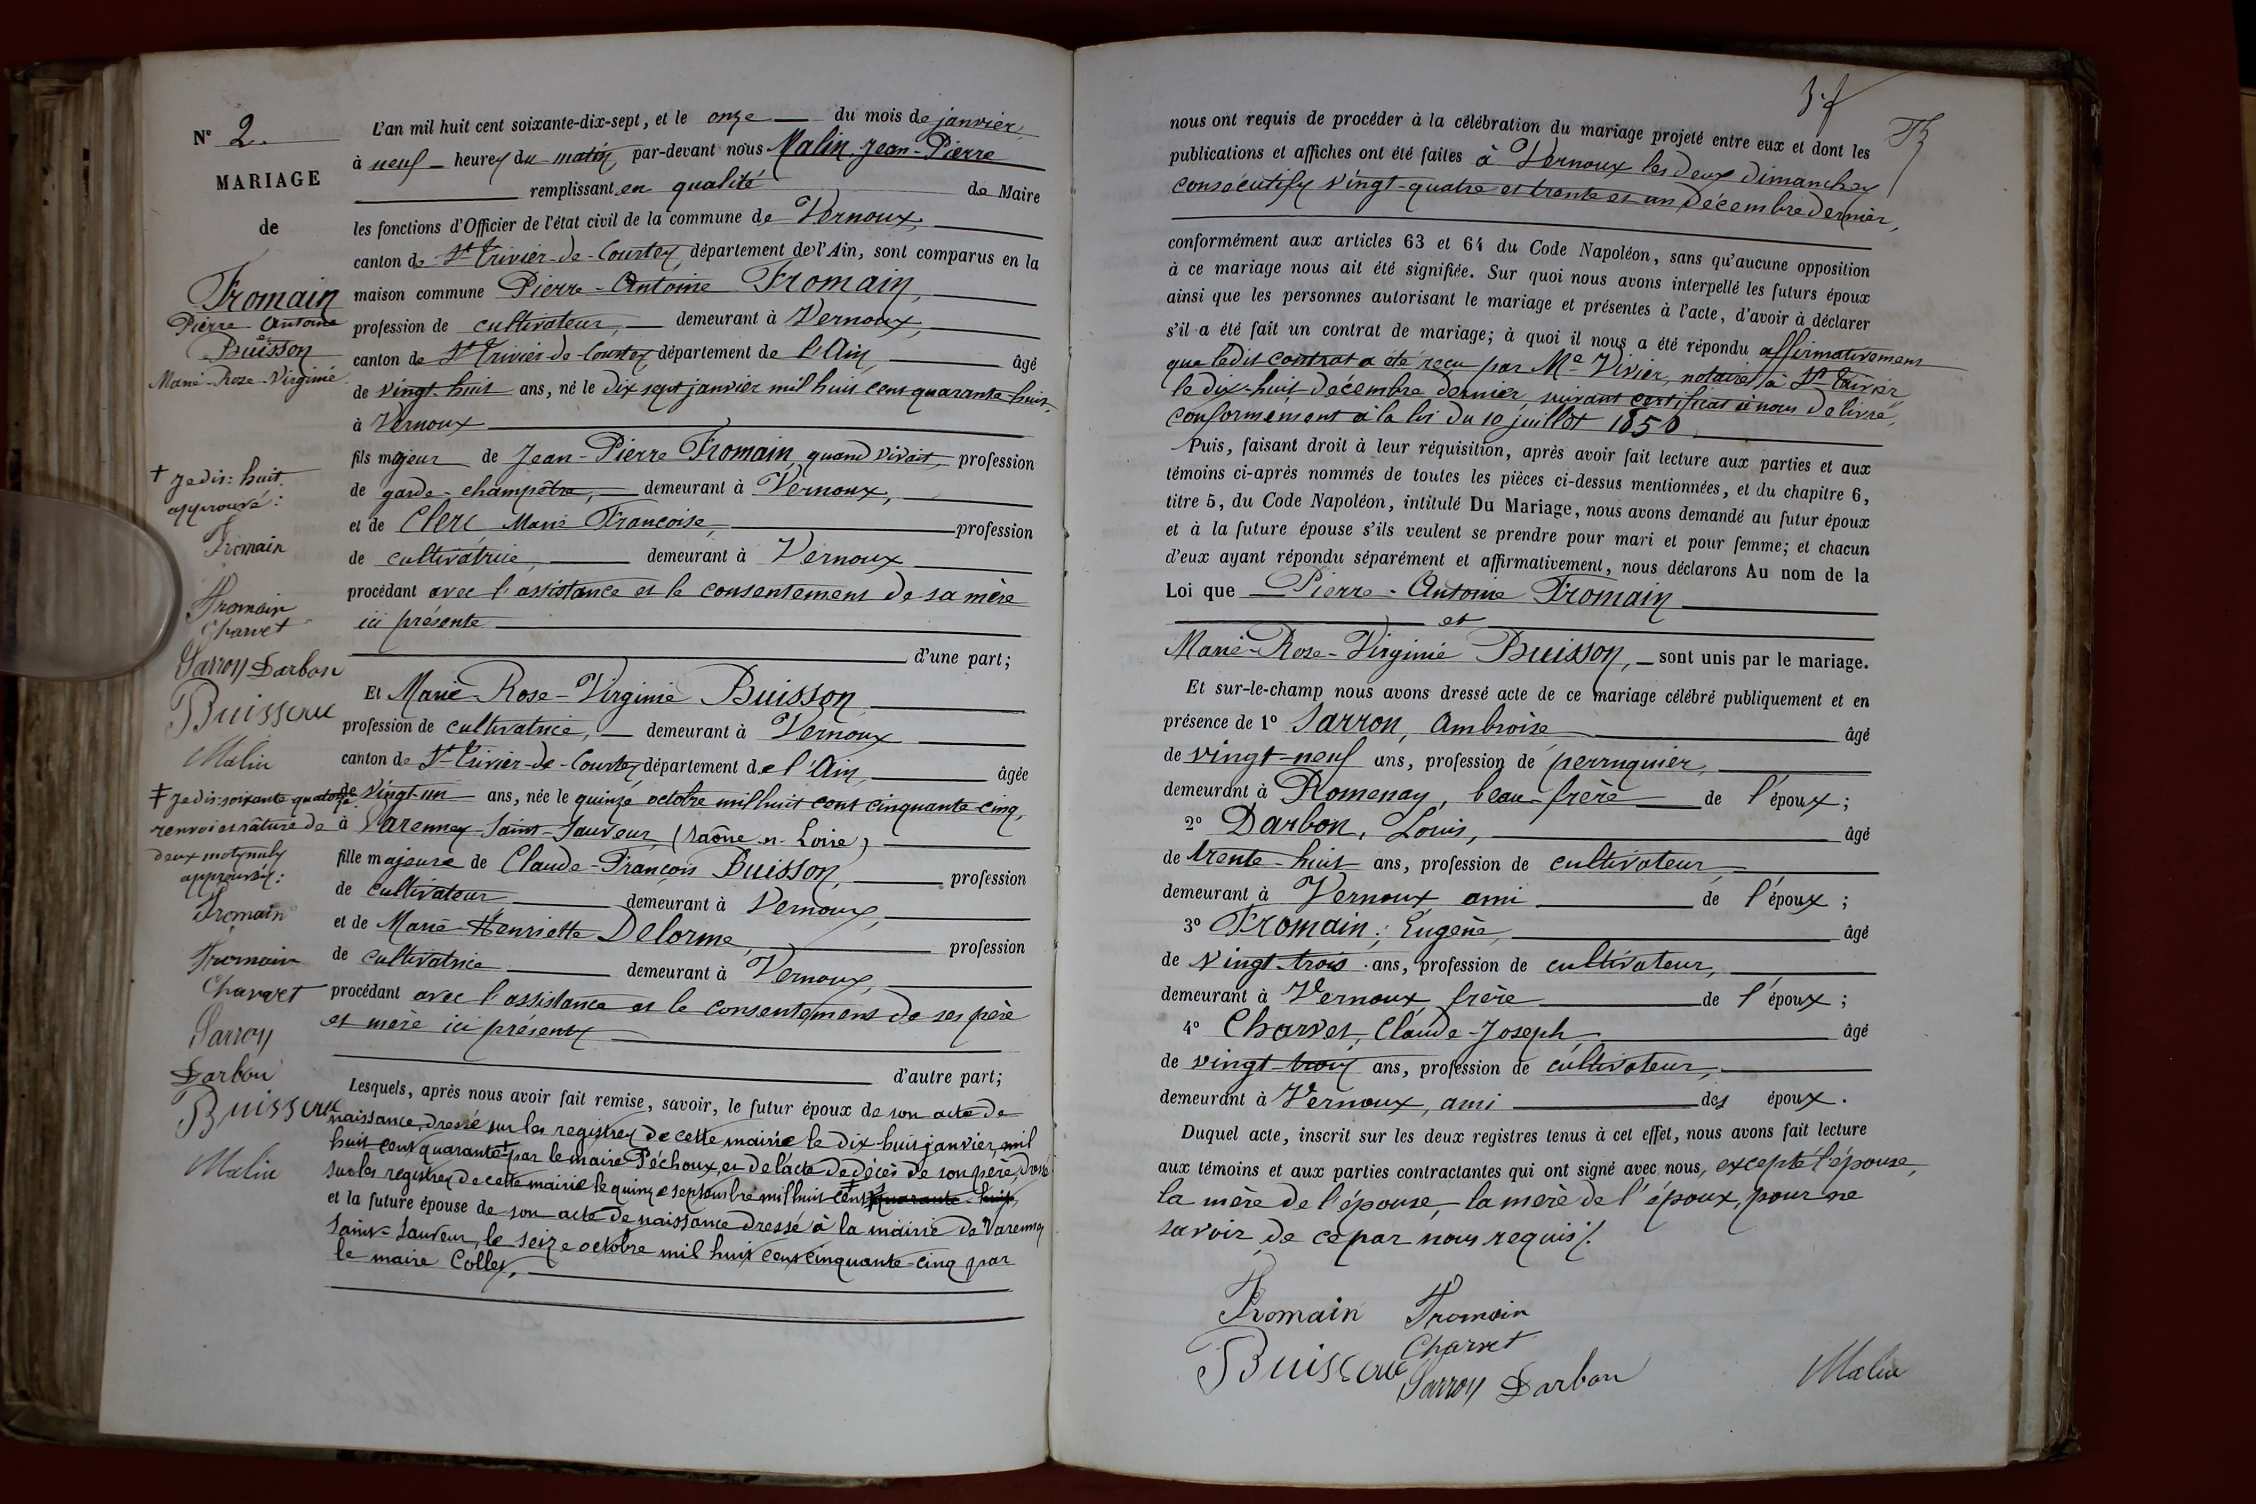 N° 2.
MARIAGE
de
Fromain
Pierre Antoine
et
Buisson
Marie-Rose-Virginie
+ Je dis: huit.
approuvé:
Fromain
Fromain
Charvet
Sarron Darbon
Buisson
Malin
‡ Je dis: soixante quatorze
renvoi et râture de
deux mots nuls
approuvés:
Fromain
Fromain
Charvet
Sarron
Darbon
Buisson
Malin
L'an mil huit cent soixante-dix-sept, et le onze du mois de janvier,
à neuf heures du matin, par-devant nous Malin, Jean-Pierre
remplissant en qualité de Maire
les fonctions d'Officier de l'état civil de la commune de Vernoux,
canton de St Trivier-de-Courtes, département de l'Ain, sont comparus en la
maison commune Pierre-Antoine Fromain,
profession de cultivateur, demeurant à Vernoux,
canton de St Trivier-de-Courtes, département de l'Ain, âgé
de vingt-huit ans, né le dix sept janvier mil huit cent quarante-huit,
à Vernoux
fils majeur de Jean-Pierre Fromain, quand vivait, profession
de garde-champêtre, demeurant à Vernoux,
et de Clerc Marie Françoise, profession
de cultivatrice, demeurant à Vernoux
procédant avec l'assistance et le consentement de sa mère
ici présente
d'une part;
Et Marie-Rose-Virginie Buisson,
profession de cultivatrice, demeurant à Vernoux
canton de St Trivier-de-Courtes, département de l'Ain, âgée
de vingt-un ans, née le quinze octobre mil huit cent cinquante-cinq,
à Varennes-Saint-Sauveur, (Saône-&-Loire)
fille majeure de Claude-François Buisson, profession
de cultivateur demeurant à Vernoux,
et de Marie-Henriette Delorme, profession
de cultivatrice demeurant à Vernoux,
procédant avec l'assistance et le consentement de ses père
et mère ici présents
d'autre part;
Lesquels, après nous avoir fait remise, savoir, le futur époux de son acte de
naissance, dressé sur les registres de cette mairie le dix-huit janvier, mil
huit cent quarante + par le maire Péchoux, et de l'acte de décès de son père, dressé
sur les registres de cette mairie le quinze septembre mil huit cent ‡ quarante-huit,
et la future épouse de son acte de naissance dressé à la mairie de Varennes
Saint-Sauveur, le seize octobre mil huit cent cinquante-cinq par
le maire Colley,
nous ont requis de procéder à la célébration du mariage projeté entre eux et dont les
publications et affiches ont été faites à Vernoux les deux dimanches
consécutifs vingt-quatre et trente et un décembre dernier,
conformément aux articles 63 et 64 du Code Napoléon, sans qu'aucune opposition
à ce mariage nous ait été signifiée. Sur quoi nous avons interpellé les futurs époux
ainsi que les personnes autorisant le mariage et présentes à l'acte, d'avoir à déclarer
s'il a été fait un contrat de mariage; à quoi il nous a été répondu affirmativement
que ledit contrat a été reçu par Me Vivier, notaire à St Trivier,
le dix-huit décembre dernier, suivant certificat à nous délivré,
conformément à la loi du 10 juillet 1850
Puis, faisant droit à leur réquisition, après avoir fait lecture aux parties et aux
témoins ci-après nommés de toutes les pièces ci-dessus mentionnées, et du chapitre 6,
titre 5, du Code Napoléon, intitulé Du Mariage, nous avons demandé au futur époux
et à la future épouse s'ils veulent se prendre pour mari et pour femme; et chacun
d'eux ayant répondu séparément et affirmativement, nous déclarons Au nom de la
Loi que Pierre-Antoine Fromain
et
Marie-Rose-Virginie Buisson, sont unis par le mariage.
Et sur-le-champ nous avons dressé acte de ce mariage célébré publiquement et en
présence de 1° Sarron, Ambroise âgé
de vingt-neuf ans, profession de perruquier,
demeurant à Romenay, beau-frère de l'époux;
2° Darbon, Louis, âgé
de trente-huit ans, profession de cultivateur,
demeurant à Vernoux ami de l'époux;
3° Fromain, Eugène, âgé
de vingt-trois ans, profession de cultivateur,
demeurant à Vernoux, frère de l'époux;
4° Charvet, Claude-Joseph, âgé
de vingt-trois ans, profession de cultivateur,
demeurant à Vernoux, ami des époux.
Duquel acte, inscrit sur les deux registres tenus à cet effet, nous avons fait lecture
aux témoins et aux parties contractantes qui ont signé avec nous, excepté l'épouse,
la mère de l'épouse, la mère de l'époux, pour ne
savoir de ce par nous requis/.
Fromain Fromain
Charvet
Buisson Sarron Darbon
Malin